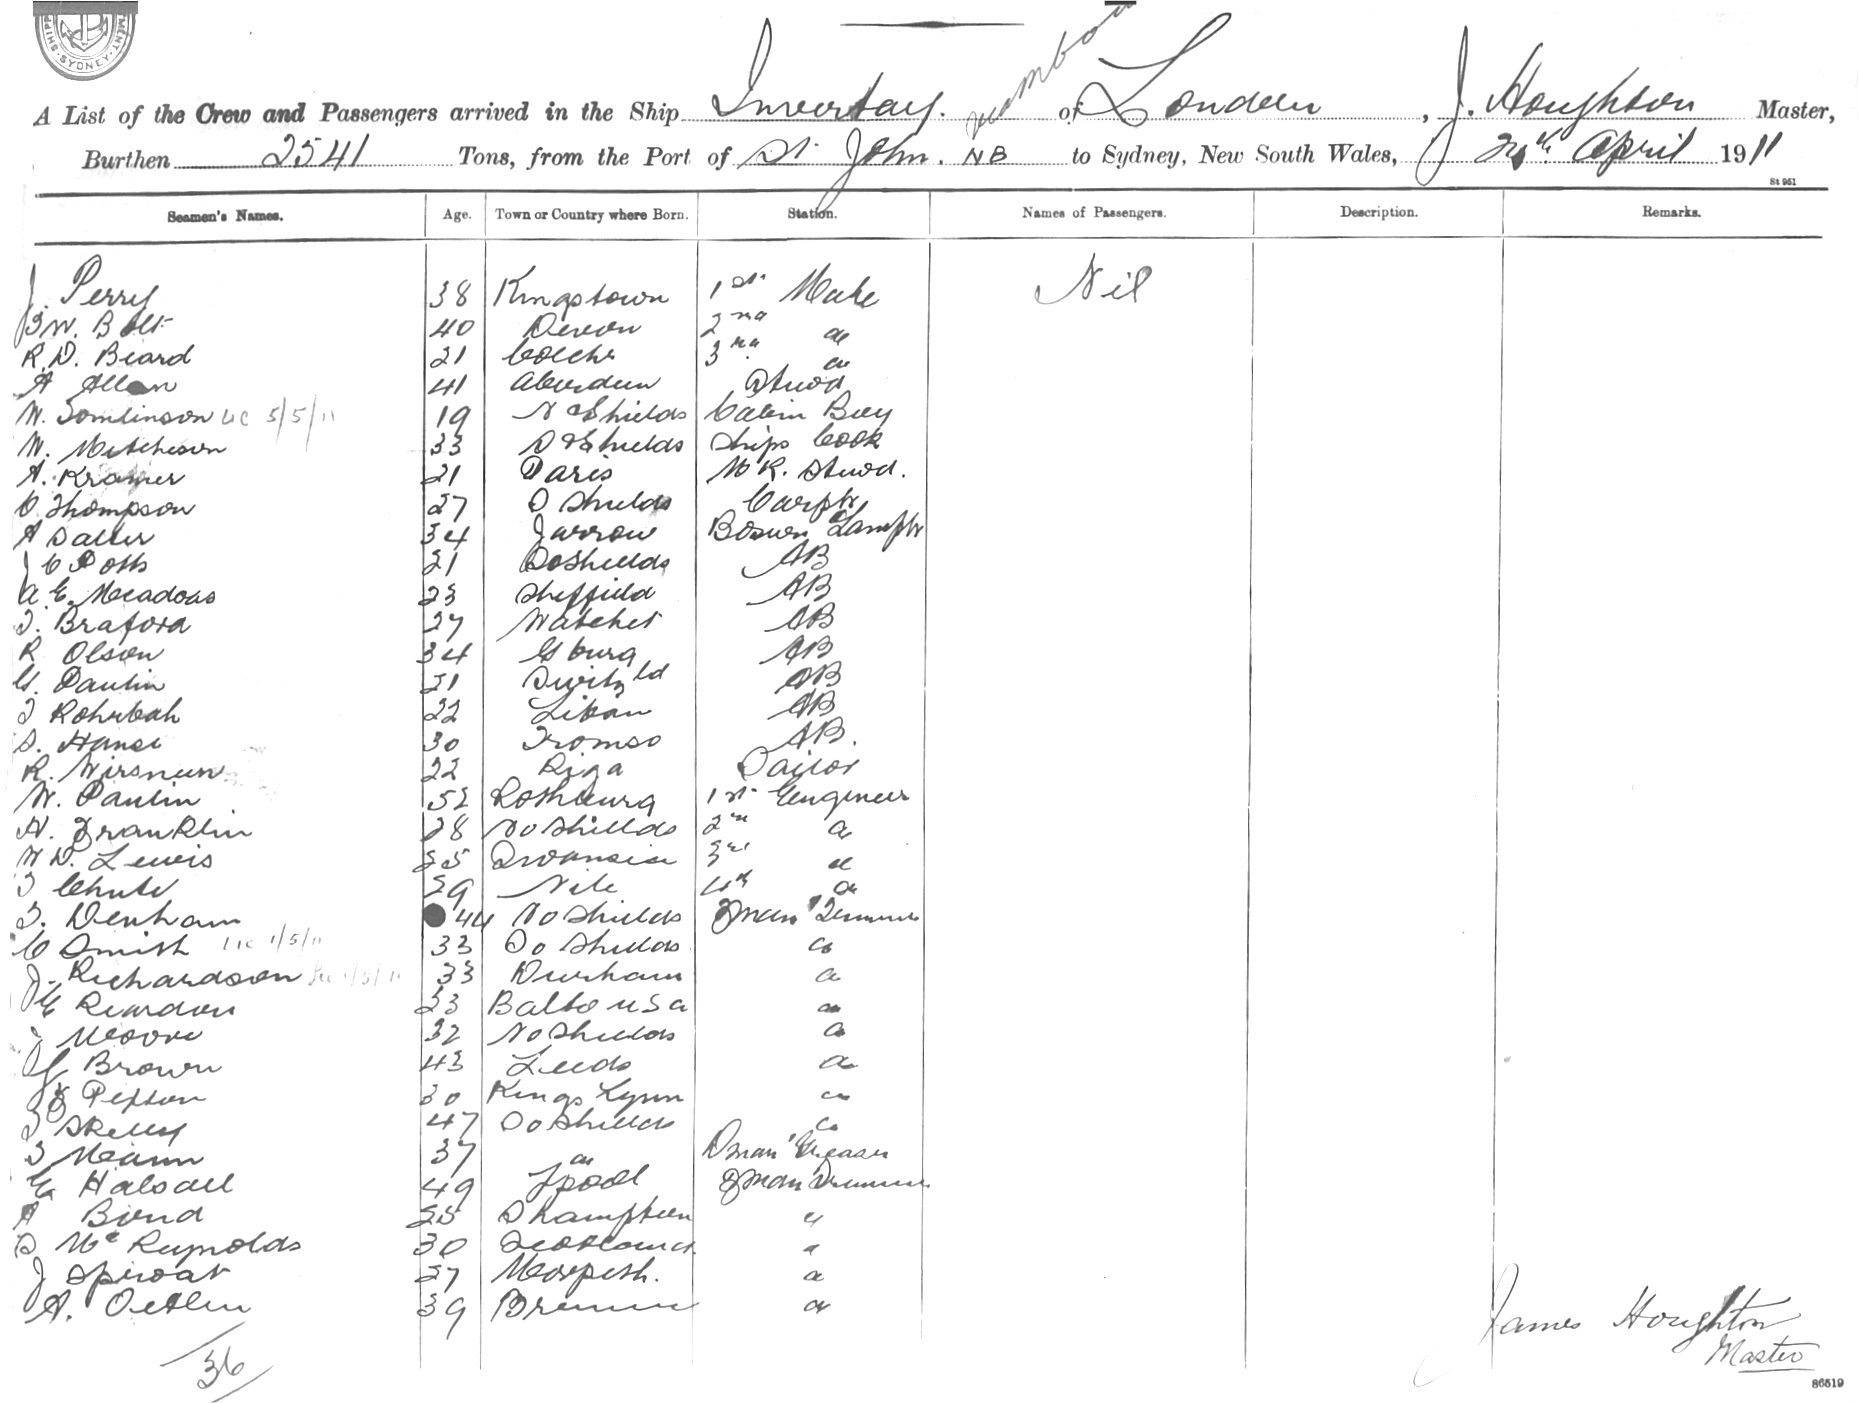 SHIPPING
MENT. SYDNEY.
A List of the Crew and Passengers arrived in the Ship Invertay. of London, J. Houghton Master,
Burthen 2541 Tons, from the Port of St John. NB to Sydney, New South Wales, April 1911
St 961
Seamen's Names. Age. Town or Country where Born. Station. Names of Passengers. Description. Remarks.
J. Perry 38 Kingstown 1st Mate Nil
W. Bolt 40 Devon 2nd "
R. D. Beard 21 Colchr 3rd "
A Allan 41 Aberdeen Stwd
W. Tomlinson Lic 5/5/11 19 N Shields Cabin Boy
W. Mitcheson 33 S Shields Ships Cook
A. Kramer 21 Paris M R. Stwd.
C. Thompson 27 S Shields Carptr
A Salter 34 Jarrow Bosun Lamptr
J C Potts 21 So Shields AB
A. E. Meadows 23 Sheffield AB
T. Braford 27 Watchet AB
R Olson 34 Gburg AB
G. Paulin 21 Switzld AB
Rohrbah 22 Libau AB
S. Hanse 30 Tromso AB.
R. 22 Riga Sailor
W. Paulin 52 Rothburg 1st Engineer
H. Franklin 28 No Shields 2nd "
W D. Lewis 25 Swansea 3rd "
T Chute 29 4th "
T. Denham 44 No Shields Fman Trimmer
C Smith Lic 1/5/11 33 So Shields "
J. Richardson Lic 1/5/11 33 Durham "
E Reardon 23 Balto USA "
J Moore 32 No Shields "
G Brown 43 Leeds "
J Pexton 30 Kings Lynn "
T Skelly 47 So Shields "
T Mann 37 " Greaser
E Halsall 49 Lpool Fman Trimmer
A Bond 25 Shampton "
S McReynolds 30 Scotland "
J Sproat 27 Morpeth. "
A. 39 Bremen "
36
James Houghton
Master
86519